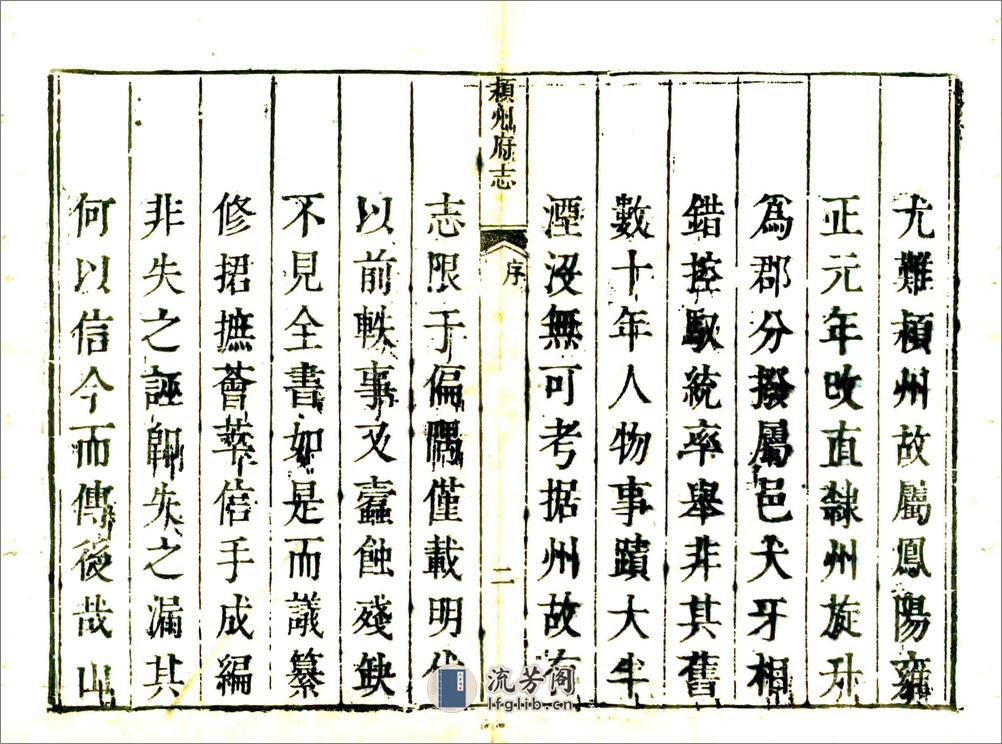 尤難潁州故屬鳳陽雍
正元年改直隸州旋升
為郡分撥屬邑犬牙相
錯控馭統率舉非其舊
數十年人物事蹟大半
湮沒無可考据州故有
潁州府志
序
二
志限于偏隅僅載明代
以前軼事又蠧蝕殘缺
不見全書如是而議纂
修捃摭薈萃信手成編
非失之誣卽失之漏其
何以信今而傳後哉山
流芳阁
lfglib.cn